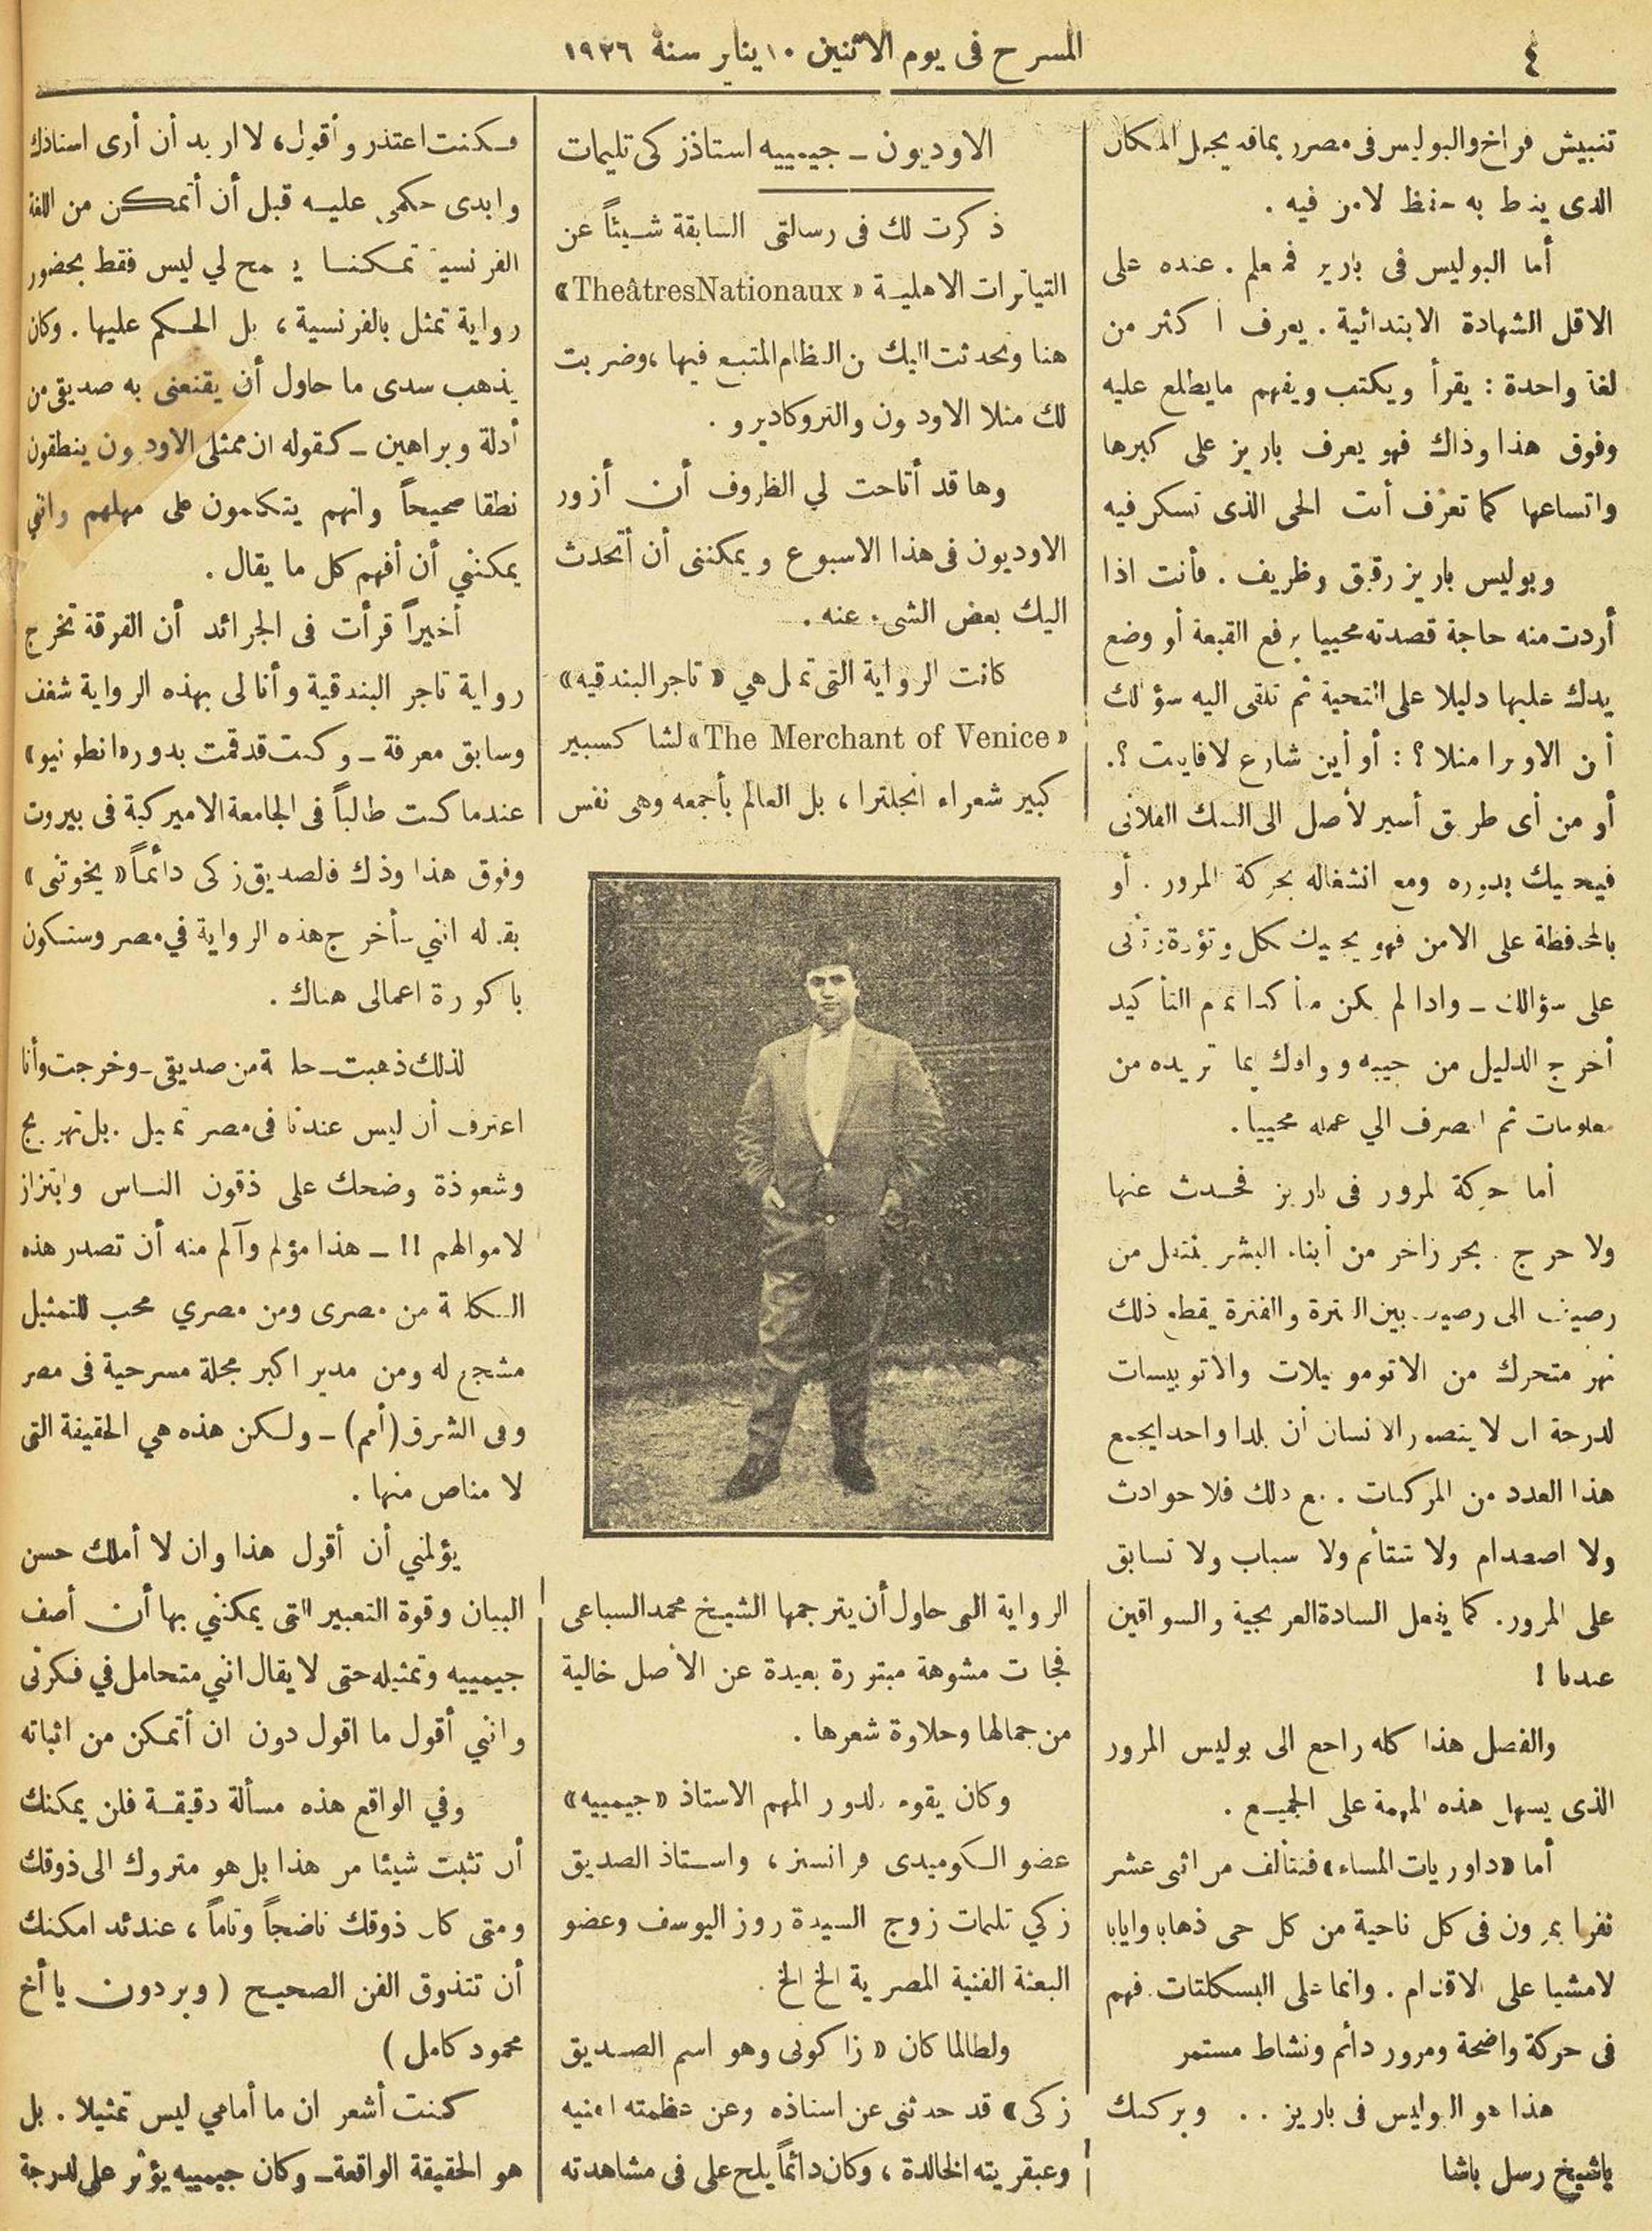 ٤
المسرح فى يوم الاثنين ١٠ يناير سنة ١٩٢٦
تنبيش فراخ والبوليس فى مصر ربمافه يجهل المكان
الذى يناط به حفظ لامن فيه .
أما البوليس فى باريز فمعلم . عنده على
الاقل الشهادة الابتدائية . يعرف اكثر من
لغة واحدة : يقرأ ويكتب ويفهم مايطلع عليه
وفوق هذا وذاك فهو يعرف باريز على كبرها
واتساعها كما تعرف أنت الحى الذى تسكر فيه
وبوليس باريز رقيق وظريف . فأنت اذا
أردت منه حاجة قصدته محييا برفع القبعة أو وضع
يدك عليها دليلا على التحية ثم تلقى اليه سؤالك
أين الاوبرا مثلا ؟ : أو أين شارع لافاييت ؟.
أو من أى طريق أسير لأصل الى البنك الفلانى
فيحييك بدوره ومع انشغاله بحركة المرور . أو
بالمحافظة على الامن فهو يجيبك بكل وتؤدة وتأنى
على سؤالك ـ واذا لم يكن متأكدا تمام التأكيد
أخرج الدليل من جيبه ووافاك بما تريده من
معلومات ثم انصرف الي عمله محييا .
أما حركة المرور فى باريز فحدث عنها
ولا حرج . بحر زاخر من أبناء البشر ينتقل من
رصيف الى رصيف بين الفترة والفترة يقطع ذلك
نهر متحرك من الاتوموبيلات والاتوبيسات
لدرجة ان لا يتصور الانسان أن بلدا واحدا يجمع
هذا العدد من المركبات . مع ذلك فلا حوادث
ولا اصطدام ولا شتائم ولا سباب ولا تسابق
على المرور. كما يفعل السادة العربجية والسواقين
عندنا !
والفضل هذا كله راجع الى بوليس المرور
الذى يسهل هذه المهمة على الجميع .
أما «داوريات المساء» فتتألف من اثنى عشر
نفرا يمرون فى كل ناحية من كل حى ذهابا وايابا
لامشيا على الاقدام . وانما على البسكلتات . فهم
فى حركة واضحة ومرور دائم ونشاط مستمر
هذا هو البوليس فى باريز . . وبركتك
ياشيخ رسل باشا
الاوديون ـ جيمييه استاذ زكى تليمات
ذكرت لك فى رسالتى السابقة شيئاً عن
التياترات الاهلية «TheâtresNationaux»
هنا وتحدثت اليك عن النظام المتبع فيها ،وضربت
لك مثلا الاوديون والتروكاديرو .
وها قد أتاحت لي الظروف أن أزور
الاوديون فى هذا الاسبوع ويمكننى أن أتحدث
اليك بعض الشىء عنه .
كانت الرواية التى تمثل هي «تاجر البندقيه»
«The Merchant of Venice» لشاكسبير
كبير شعراء انجلترا ، بل العالم بأجمعه وهى نفس
الرواية التى حاول أن يترجمها الشيخ محمد السباعى
فجاءت مشوهة مبتورة بعيدة عن الأصل خالية
من جمالها وحلاوة شعرها .
وكان يقوم بالدور المهم الاستاذ «جيمييه»
عضو الكوميدى فرانسيز ، واستاذ الصديق
زكي تليمات زوج السيدة روز اليوسف وعضو
البعثة الفنية المصرية الخ الخ .
ولطالما كان «زاكونى وهو اسم الصديق
زكى» قد حدثنى عن استاذه وعن عظمته الفنيه
وعبقريته الخالدة ، وكان دائماً يلح على فى مشاهدته
فكنت اعتذر وأقول، لا اريد أن أرى استاذك
وابدى حكمى عليه قبل أن أتمكن من اللغة
الفرنسية تمكنا يسمح لي ليس فقط بحضور
رواية تمثل بالفرنسية ، بل الحكم عليها . وكان
يذهب سدى ما حاول أن يقنعنى به صديقى من
أدلة وبراهين ـ كقوله ان ممثلى الاوديون ينطقون
نطقا صحيحاً وانهم يتكلمون على مهلهم واننى
يمكنني أن أفهم كل ما يقال .
أخيراً قرأت فى الجرائد أن الفرقة تخرج
رواية تاجر البندقية وأنا لى بهذه الرواية شغف
وسابق معرفة ـ وكنت قد قمت بدور «انطونيو»
عندما كنت طالباً فى الجامعة الاميركية فى بيروت
وفوق هذا وذك فلصديق زكى دائماً «يخوتنى»
بقوله انني سأخرج هذه الرواية في مصر وستكون
باكورة اعمالى هناك .
لذلك ذهبت ـ حلة من صديقى ـ وخرجت وأنا
اعترف أن ليس عندنا فى مصر تمثيل . بل تهريج
وشعوذة وضحك على ذقون الناس وابتزاز
لاموالهم !! ـ هذا مؤلم وآلم منه أن تصدر هذه
الكلمة من مصرى ومن مصري محب للتمثيل
مشجع له ومن مدير اكبر مجلة مسرحية فى مصر
وفى الشرق (أمم) ـ ولكن هذه هي الحقيقة التى
لا مناص منها .
يؤلمني أن أقول هذا وان لا أملك حسن
البيان وقوة التعبير التى يمكنني بها أن أصف
جيمييه وتمثيله حتى لا يقال انني متحامل في فكرتى
وانني أقول ما اقول دون ان أتمكن من اثباته
وفي الواقع هذه مسألة دقيقة فلن يمكنك
أن تثبت شيئا من هذا بل هو متروك الى ذوقك
ومتى كان ذوقك ناضجاً وتاماً ، عندئذ امكنك
أن تتذوق الفن الصحيح ( وبردون يا أخ
محمود كامل )
كنت أشعر ان ما أمامي ليس تمثيلا . بل
هو الحقيقة الواقعة ـ وكان جيمييه يؤثر على لدرجة